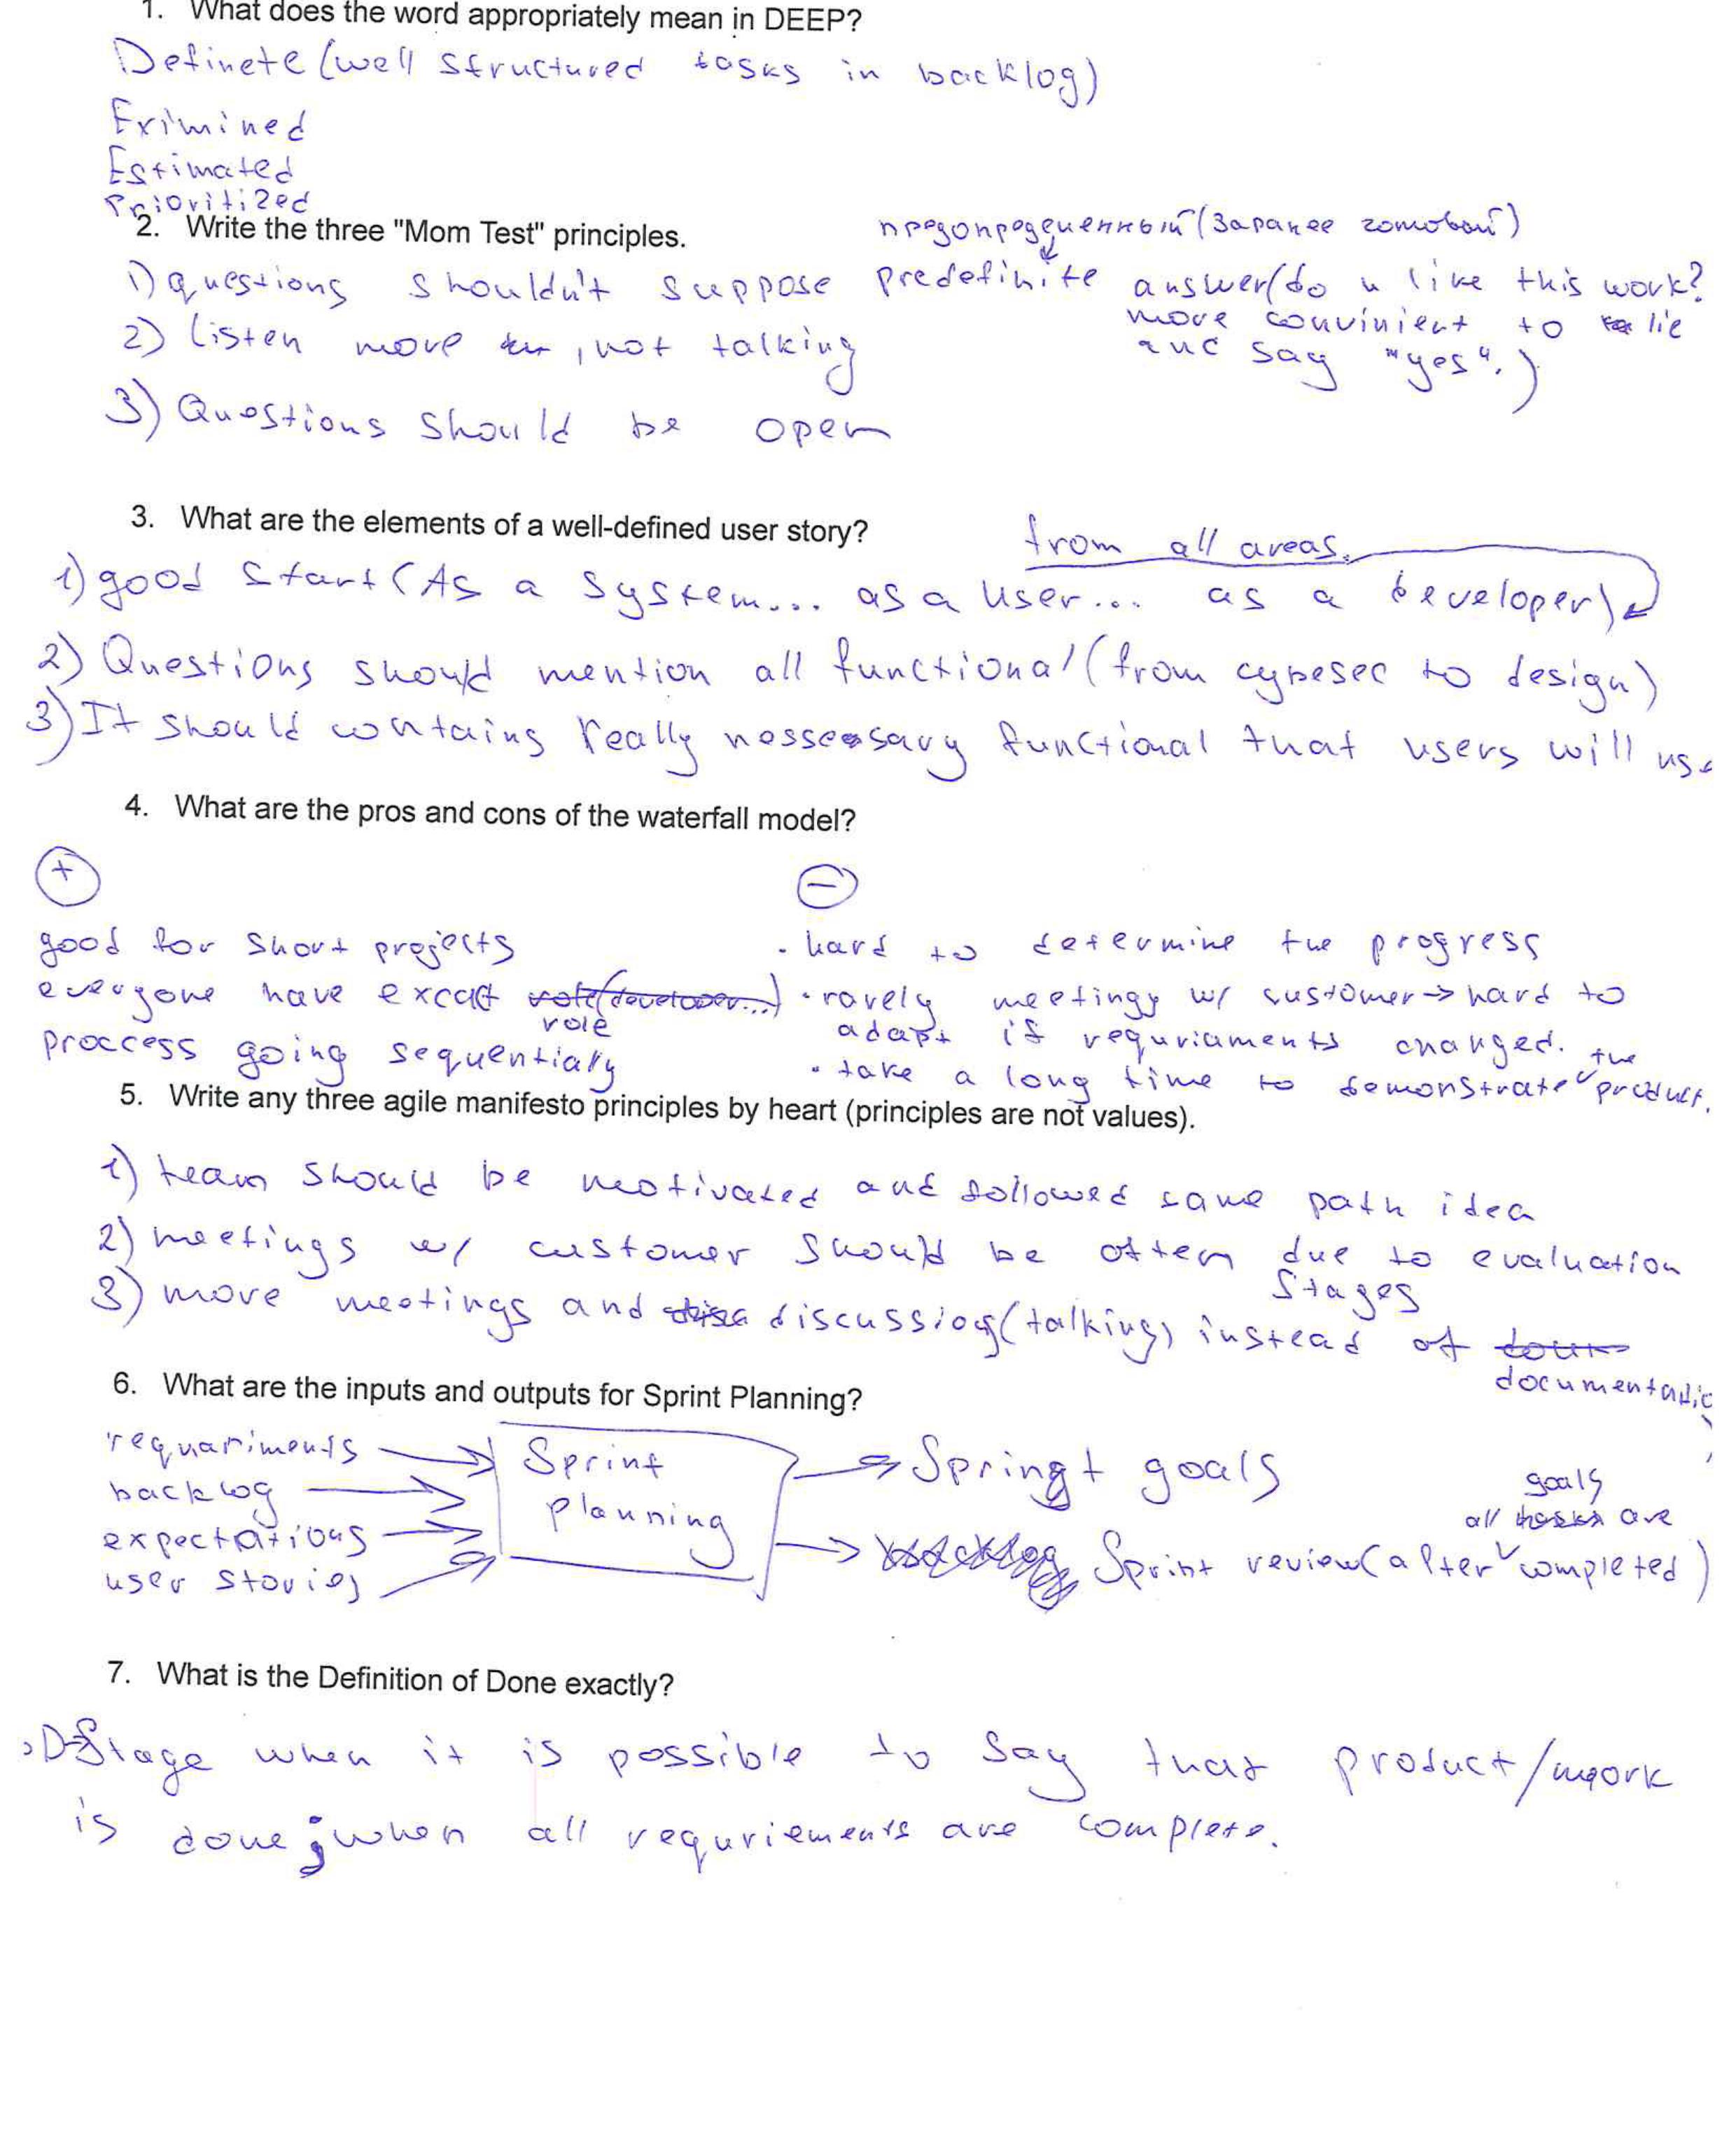 1. What does the word appropriately mean in DEEP?
Definete (well structured tasks in backlog)
Eximined
Estimated
Prioritized
2. Write the three "Mom Test" principles.
предопределенный (заранее готовый)
1) questions shouldn't suppose predefinite answer (do u like this work?
more convinient to lie
and say "yes".)
2) listen more , not talking
3) Questions should be open
3. What are the elements of a well-defined user story?
from all areas.
1) good start (As a system... as a user... as a developer)
2) Questions should mention all functional (from cypesec to design)
3) It should contains really nessesary functional that users will use
4. What are the pros and cons of the waterfall model?
+
good for short projects
everyone have excact role
proccess going sequentially
-
· hard to determine the progress
· rarely meetingy w/ customer → hard to
adapt if requriaments changed.
· take a long time to demonstrate the product.
5. Write any three agile manifesto principles by heart (principles are not values).
1) team should be motivated and followed same path idea
2) meetings w/ customer should be often due to evaluation
stages
3) more meetings and discussion (talking) instead of
documentatio
6. What are the inputs and outputs for Sprint Planning?
requariments
backlog
expectations
user stories
Sprint
planning
Springt goals
Sprint review (after all goals are completed)
7. What is the Definition of Done exactly?
Stage when it is possible to say that product/work
is done; when all requriements are complete.